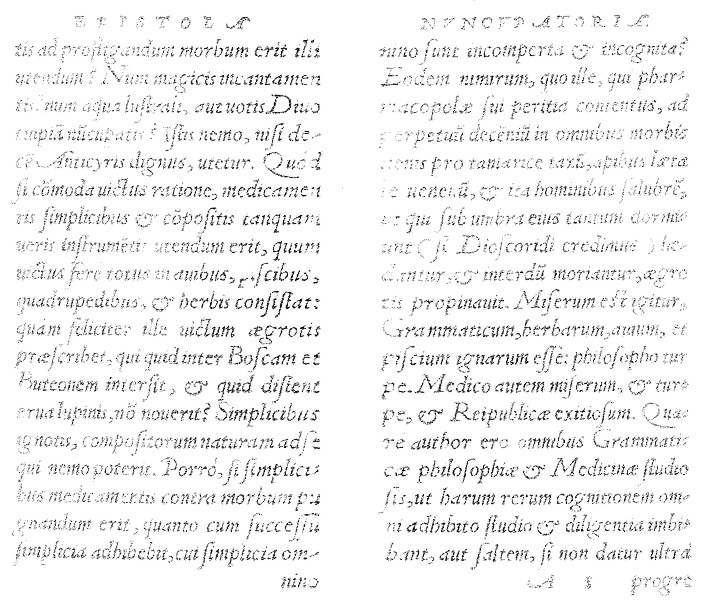 EPISTOLA
tis ad profligandum morbum erit illi
utendum? Num magicis incantamen
tis? num aqua lustrali, aut uotis Diuo
cuipiã nũcupatis? Istis nemo, nisi de-
cẽ Anticyris dignus, utetur. Quòd
si cõmoda uictus ratione, medicamen
tis simplicibus & cõpositis tanquam
ueris instrumẽtis utendum erit, quum
uictus ferè totus in auibus, piscibus,
quadrupedibus, & herbis consistat:
quàm feliciter ille uictum ægrotis
præscribet, qui quid inter Boscam et
Buteonem intersit, & quid distent
erua lupinis, nõ nouerit? Simplicibus
ignotis, compositorum naturam adse
qui nemo poterit. Porrò, si simplici-
bus medicamentis contra morbum pu
gnandum erit, quanto cum successu
simplicia adhibebit, cui simplicia om-
nino
NVNCVPATORIA.
nino sunt incomperta & incognita?
Eodem nimirum, quo ille, qui phar-
macopolæ sui peritia contentus, ad
perpetuũ decẽniũ in omnibus morbis
uenis pro tamarice taxũ, apibus læta
le uenenũ, & ita hominibus salubrẽ,
ut qui sub umbra eius tantum dormi-
unt (si Dioscoridi credimus) læ-
dantur, & interdũ moriantur, ægro
tis propinauit. Miserum est igitur,
Grammaticum, herbarum, auium, et
piscium ignarum esse: philosopho tur
pe. Medico autem miserum, & tur-
pe, & Reipublicæ exitiosum. Qua-
re author ero omnibus Grammati-
cæ philosophiæ & Medicinæ studio
sis, ut harum rerum cognitionem om-
ni adhibito studio & diligentia imbi-
bant, aut saltem, si non datur ultrà
A 5 progre